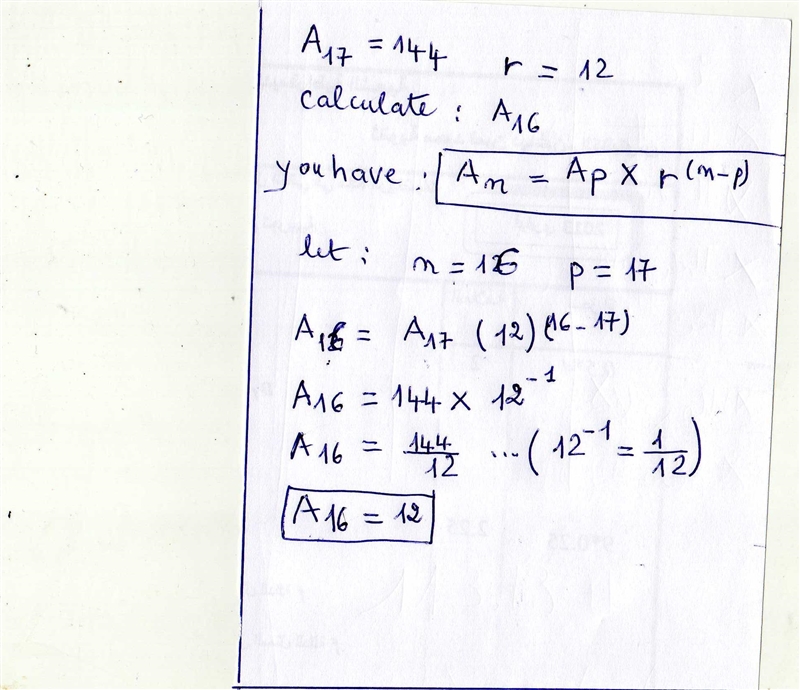 A₁₇ = 144 r = 12
Calculate : A₁₆
you have : Aₙ = Aₚ × r⁽ⁿ⁻ᵖ⁾
let : n = 16 p = 17
A₁₆ = A₁₇ (12)⁽¹⁶⁻¹⁷⁾
A₁₆ = 144 × 12⁻¹
A₁₆ = 144/12 ... (12⁻¹ = 1/12)
A₁₆ = 12